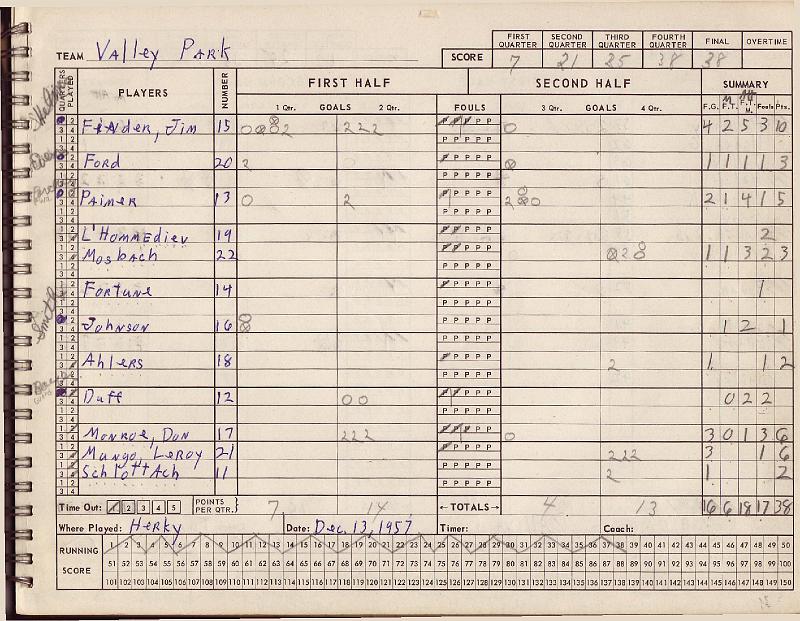 FIRST QUARTER SECOND QUARTER THIRD QUARTER FOURTH QUARTER FINAL OVERTIME
TEAM Valley Park SCORE 7 21 25 38 38
QUARTERS PLAYED PLAYERS NUMBER FIRST HALF SECOND HALF SUMMARY
1 Qtr. GOALS 2 Qtr. FOULS 3 Qtr. GOALS 4 Qtr. F.G. F.T. F.T. M. Fouls Pts.
Finder, Jim 15 2 2 2 2 P P P P P 4 2 5 3 10
Ford 20 2 P P P P P 1 1 1 1 3
Palmer 13 O 2 P P P P P 2 O 2 1 4 1 5
L'Hommedieu 19 P P P P P 2
Mosbach 22 P P P P P 2 1 1 3 2 3
Fortune 14 P P P P P 1
Johnson 16 P P P P P 1 2 1
Ahlers 18 P P P P P 2 1 1 2
Duff 12 O O P P P P P 0 2 2
Monroe, Don 17 2 2 2 P P P P P O 3 0 1 3 6
Mungo, Leroy 21 P P P P P 2 2 2 3 1 6
Schlottach 11 P P P P P 2 1 2
Time Out: 1 2 3 4 5 POINTS PER QTR. 7 14 ←TOTALS→ 4 13 16 6 18 17 38
Where Played: Herky Date: Dec. 13, 1957 Timer: Coach:
RUNNING 1 2 3 4 5 6 7 8 9 10 11 12 13 14 15 16 17 18 19 20 21 22 23 24 25 26 27 28 29 30 31 32 33 34 35 36 37 38 39 40 41 42 43 44 45 46 47 48 49 50
SCORE 51 52 53 54 55 56 57 58 59 60 61 62 63 64 65 66 67 68 69 70 71 72 73 74 75 76 77 78 79 80 81 82 83 84 85 86 87 88 89 90 91 92 93 94 95 96 97 98 99 100
101 102 103 104 105 106 107 108 109 110 111 112 113 114 115 116 117 118 119 120 121 122 123 124 125 126 127 128 129 130 131 132 133 134 135 136 137 138 139 140 141 142 143 144 145 146 147 148 149 150